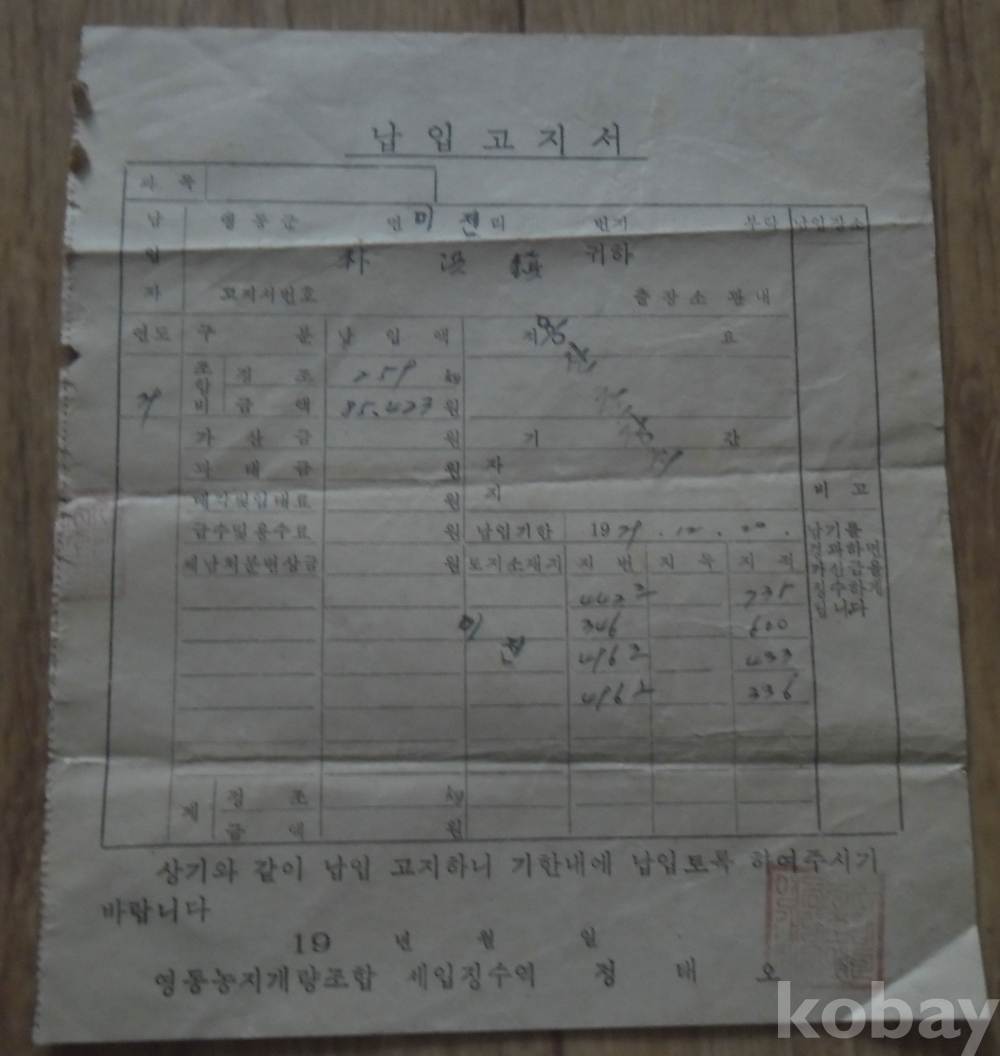 납입고지서
과목
납입자 영동군 면 미전리 번지 부락 납입장소
朴 鎭 귀하
고지서번호 출장소 관내
연도 구분 납입액 적요
79 조합비 정조 259 kg
금액 85.423 원
가산금 원 기간
과태금 원 자
매각및임대료 원 지 비고
급수및용수료 원 납입기한 1979. 12. 20.
체납처분변상금 원 토지소재지 지번 지목 지적
납기를 경과하면 가산금을 징수하게 됩니다
442 2 735
미전 346 600
496 3 433
496 2 336
계 정조 kg
금액 원
상기와 같이 납입 고지하니 기한내에 납입토록 하여주시기
바랍니다
19 년 월 일
영동농지개량조합 세입징수역 정 태 오
kobay